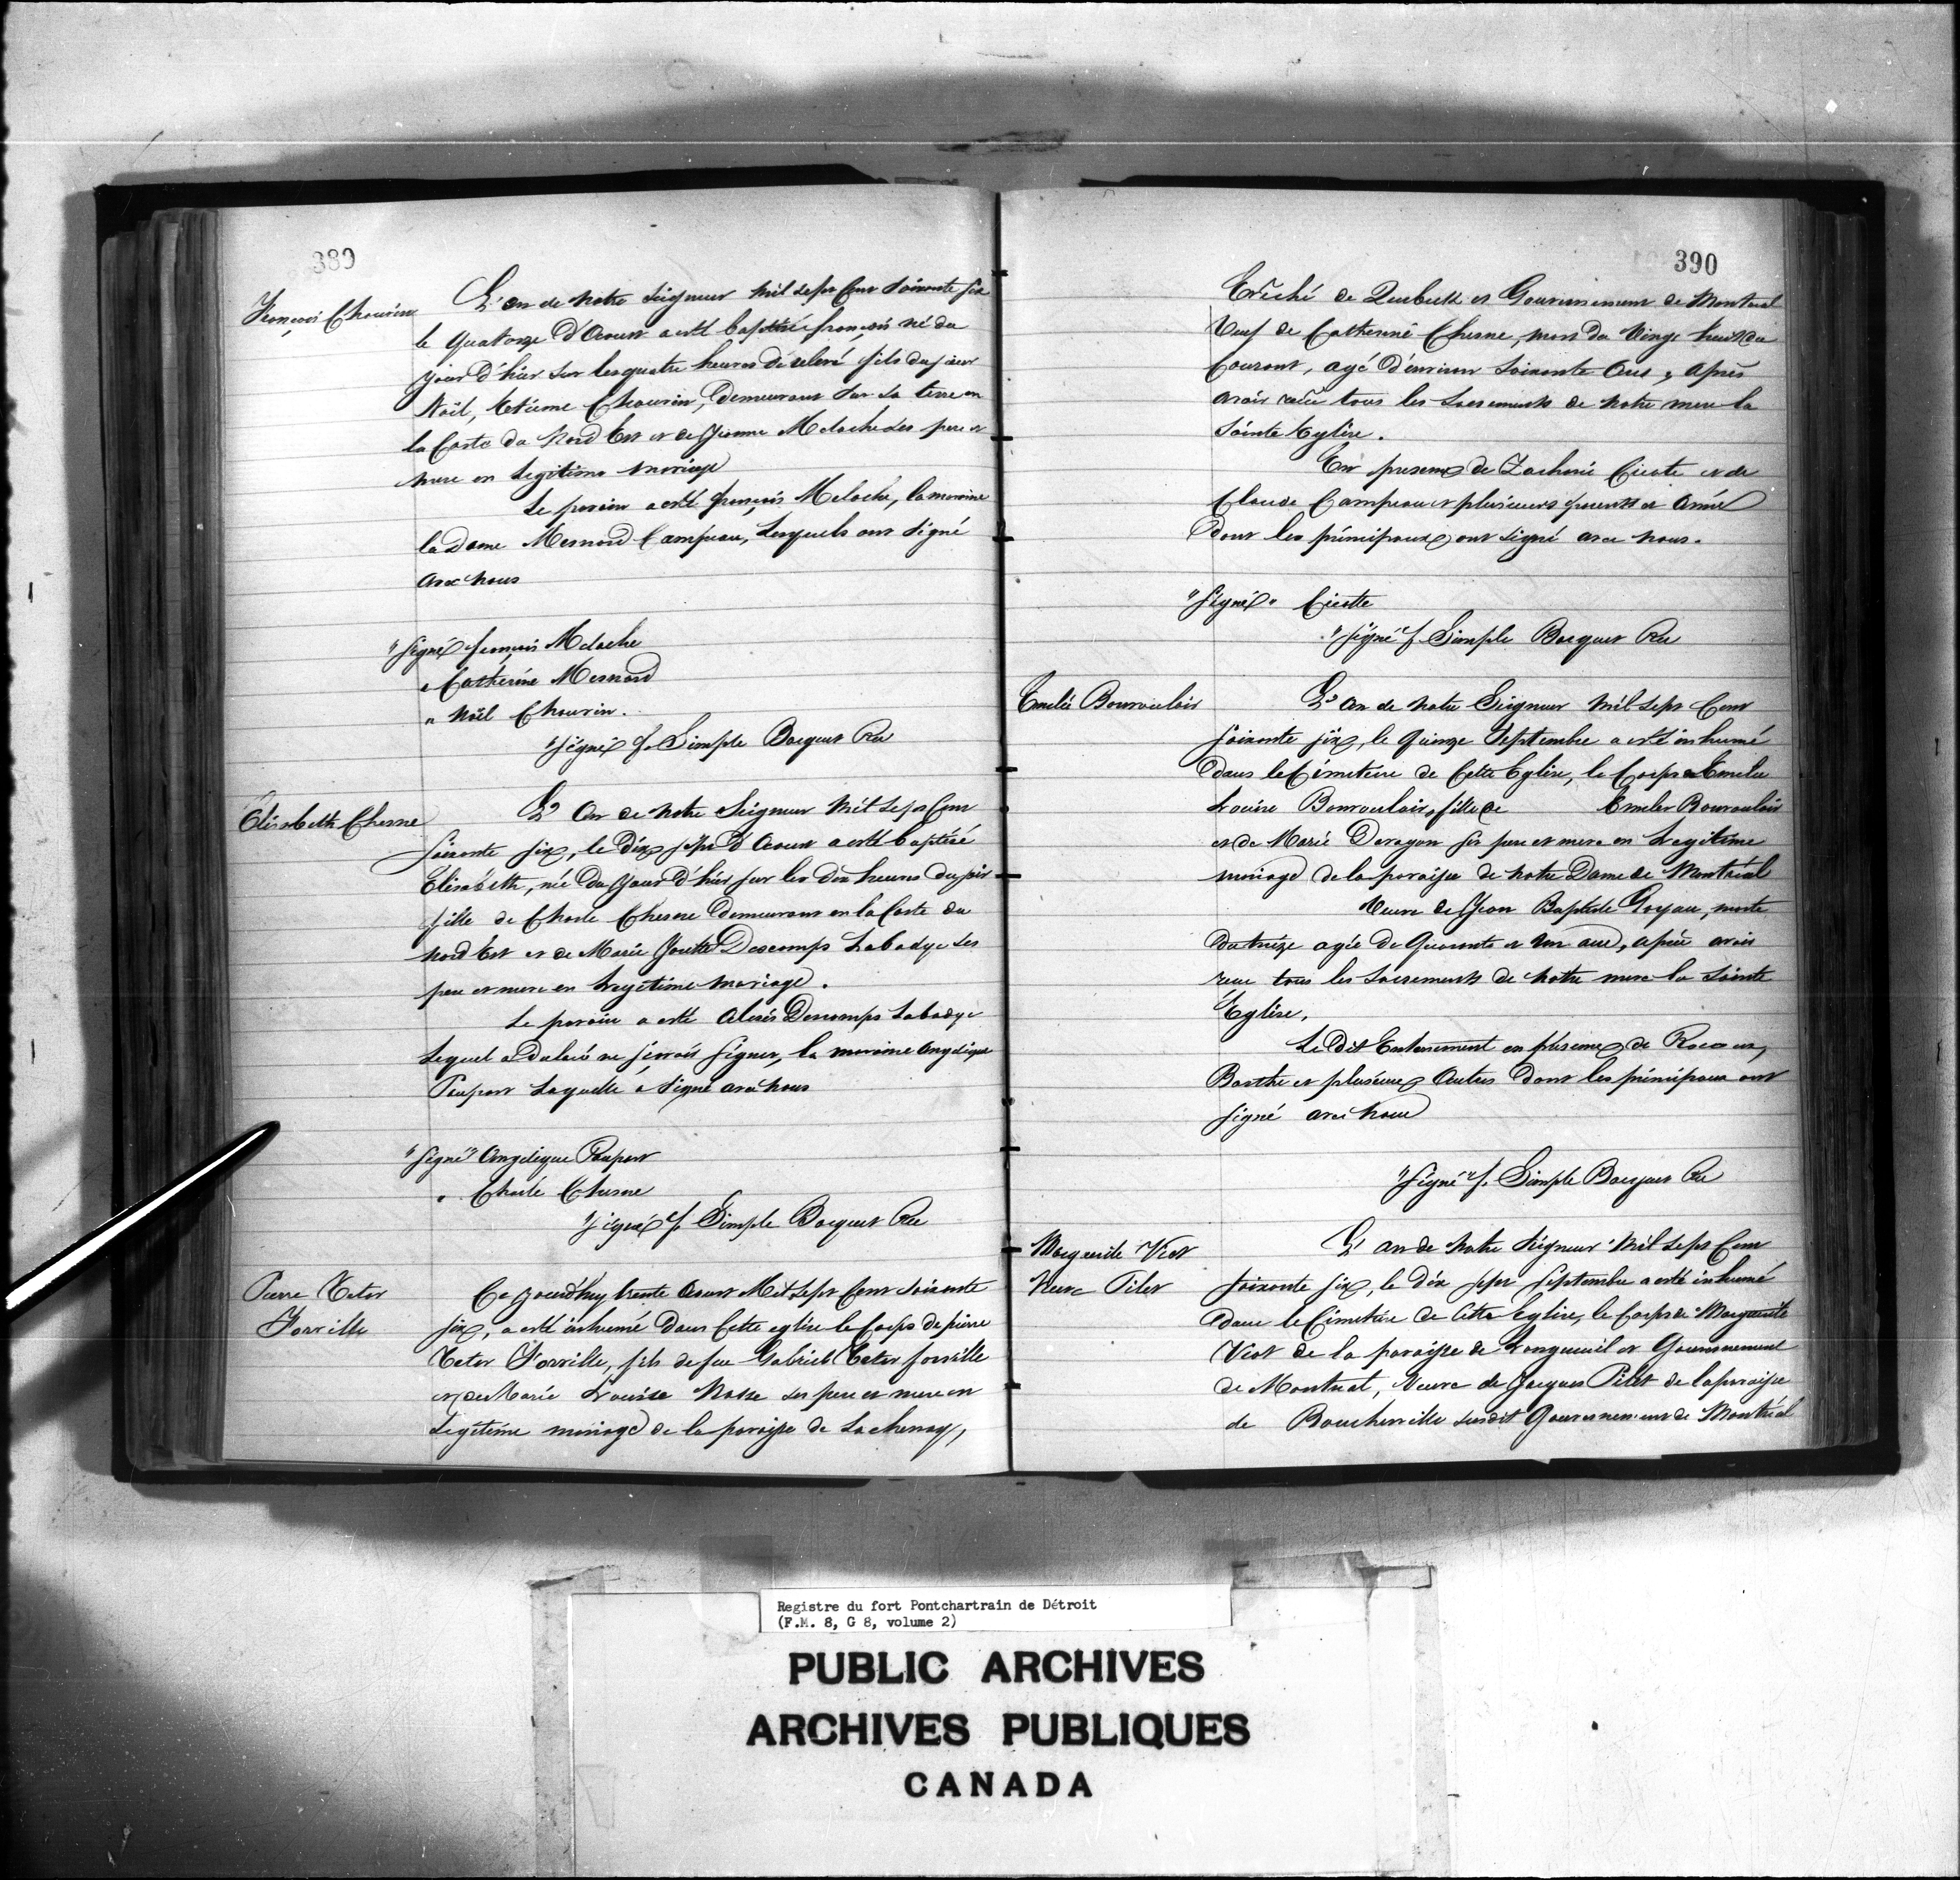 389
François Chauvin
L'an de Notre Seigneur Mil Sept Cent Soixante Six
le Quatorze D'Aoust a esté baptisé françois né du
jour D'hier Sur les quatre heures de relevé fils du sieur
Noël, Chauvin, Demeurant Sur Sa terre en
la Coste du Nord Est et de Jeanne Meloche Ses pere et
mere en Legitime Mariage
Le parain a esté François Meloche, la maraine
la Dame Mesnard Campeau, Lesquels ont Signé
avec Nous
"Signé françois Meloche
" Catherine Mesnard
" Noël Chauvin.
"Signé f. Simple Bocquet Rec
Élisabeth Chesne
L'An de Notre Seigneur Mil Sept Cent
Soixante Six, le Dix Sept D'Aoust a esté baptisé
Élisabeth, née Du Jour D'hier sur les dix heures du soir
fille de Charle Chesne Demeurant en la Coste du
Nord Est et de Marie Josette Descomps Labadye Ses
pere et mere en Legitime Mariage.
Le parain a esté Alexis Descomps Labadye
Lequel a Declaré ne sçavoir Signer, la maraine Angelique
Poupart Laquelle a Signé avec Nous
"Signé" Angelique Poupart
" Charle Chesne
"Signé" f. Simple Bocquet Rec
Pierre Tetar
Forville
Ce jourd'huy trente Aoust Mil Sept Cent Soixante
Six, a esté inhumé Dans Cette eglise le Corps de pierre
Tetar Forville, fils de feu Gabriel Tetar forville
et de Marie Louise Nasse ses pere et mere en
Legitime mariage de la paroisse de Lachenay,
390
Evêché de Quebeck et Gouvernement de Montreal
Veuf de Catherine Chesne, mort du Vingt huit du
Courant, agé D'environ Soixante Ans, après
avoir reçu tous les Sacrements de Notre mere la
Sainte Eglise.
En presence de Zacharie Cicote et de
Claude Campeau et plusieurs parents et Amis
Dont les principaux ont signé avec Nous.
"Signé" Cicotte
"Signé" f. Simple Bocquet Rec
Emelie Bonvouloir
L'An de Notre Seigneur Mil Sept Cent
Soixante Six, le Quinze Septembre a esté inhumé
Dans le Cimetiere de Cette Eglise, le Corps Emelie
Louise Bonvouloir, fille de Emelie Bonvouloir
et de Marie Deragon Ses pere et mere en Legitime
mariage de la paroisse de Notre Dame de Montréal
Veuve de Jean Baptiste Goyau, morte
Du treize agée De Quarante et Un ans, après avoir
reçue tous les Sacrements de Notre mere la Sainte
Eglise.
Le Dit Enterrement en presence de
Barthe et plusieurs Autres Dont les principaux ont
Signé avec Nous
"Signé" f. Simple Bocquet Rec
Marguerite Viot
Veuve Pilet
L'an de Notre Seigneur Mil Sept Cent
Soixante Six, le Dix Sept Septembre a esté inhumé
Dans le Cimetiere de Cette Eglise, le Corps de Marguerite
Viot de la paroisse de Longueuil et Gouvernement
de Montreal, Veuve de Jacques Pilet de la paroisse
de Boucherville susdit Gouvernement de Montréal
Registre du fort Pontchartrain de Détroit
(F.M. 8, G 8, volume 2)
PUBLIC ARCHIVES
ARCHIVES PUBLIQUES
CANADA